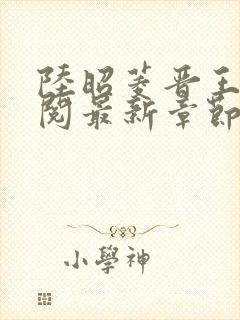 陸昭菱晉王
閱最新章節
小學神